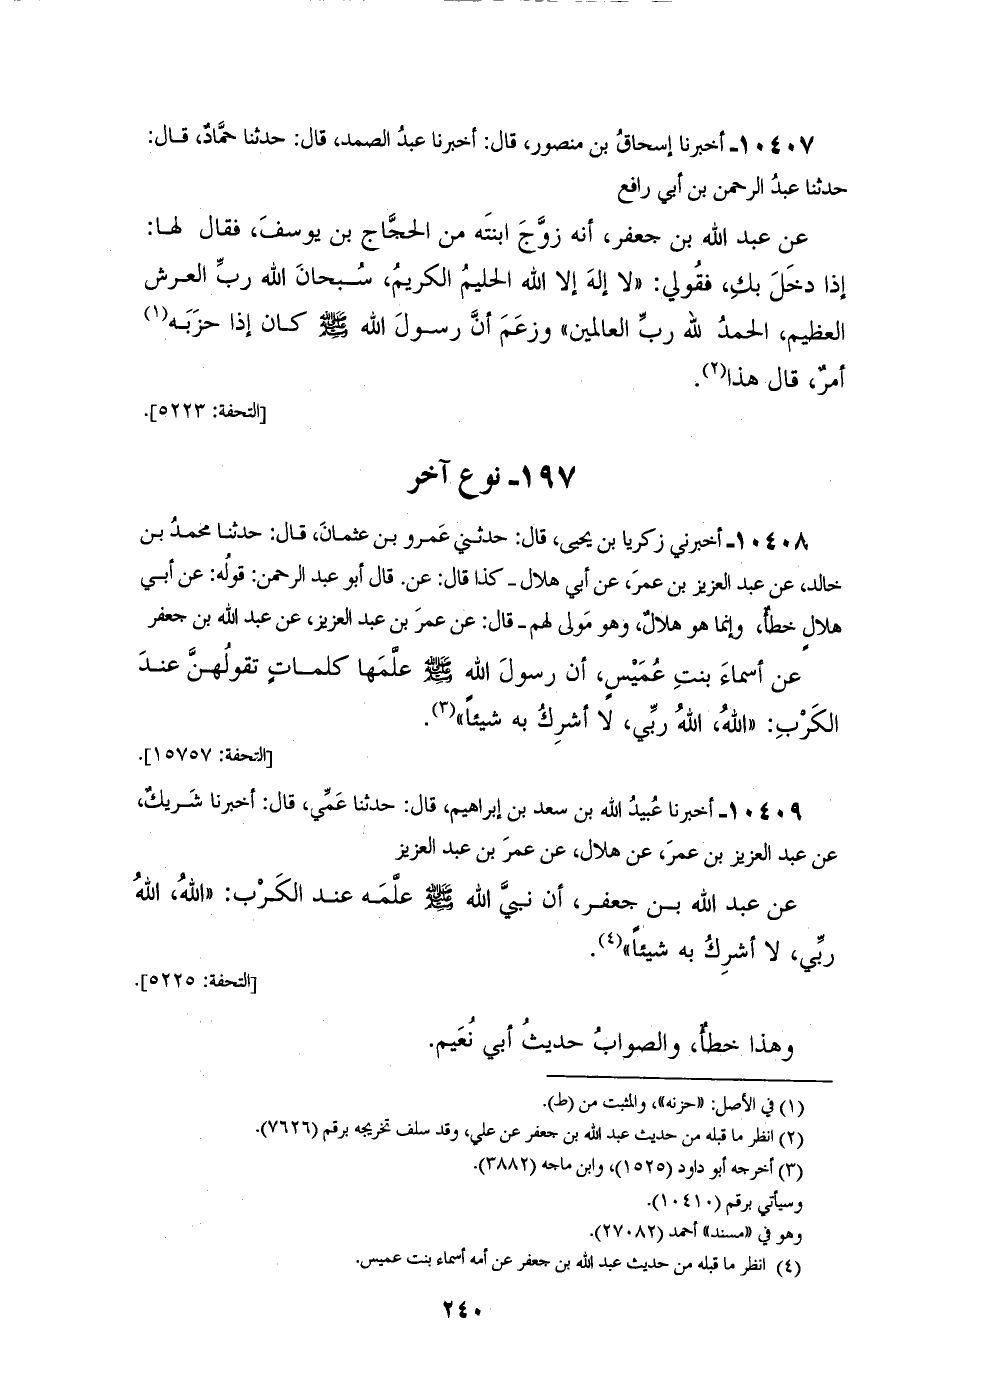 ١٠٤٠٧ـ أخبرنا إسحاقُ بن منصور، قال: أخبرنا عبدُ الصمد، قال: حدثنا حمَّادٌ، قـال:
حدثنا عبدُ الرحمن بن أبي رافع
عن عبد الله بن جعفر، أنه زوَّجَ ابنتَه من الحجَّاج بن يوسفَ، فقال لها:
إذا دخَلَ بكِ، فقُولي: «لا إلهَ إلا الله الحليمُ الكريمُ، سُـبحانَ الله ربِّ العـرش
العظيم، الحمدُ لله ربِّ العالمين» وزعَمَ أنَّ رسـولَ الله ﷺ كـان إذا حزَبَـه(١)
أمرٌ، قال هذا(٢).
[التحفة: ٥٢٢٣].
١٩٧ـ نوع آخر
١٠٤٠٨ـ أخبرني زكريا بن يحيى، قال: حدثـني عَمـرو بـن عثمـانَ، قـال: حدثنـا محمـدُ بـن
خالد، عن عبد العزيز بن عمرَ، عن أبي هلال ـ كذا قال: عن. قال أبو عبد الرحمن: قولُه: عن أبـي
هلالٍ خطأٌ، وإنما هو هلالٌ، وهو مَولى لهم ـ قال: عن عمرَ بن عبد العزيز، عن عبد الله بن جعفر
عن أسماءَ بنتِ عُمَيْسٍ، أن رسولَ الله ﷺ علَّمَها كلمـاتٍ تقولُهـنَّ عنـدَ
الكَرْبِ: «اللهُ، اللهُ ربِّي، لا أشرِكُ به شيئاً»(٣).
[التحفة: ١٥٧٥٧].
١٠٤٠٩ـ أخبرنا عُبيدُ الله بن سعد بن إبراهيم، قال: حدثنا عَمِّي، قال: أخبرنا شَـريكٌ،
عن عبد العزيز بن عمرَ، عن هلال، عن عمرَ بن عبد العزيز
عن عبد الله بـن جعفـر، أن نـبيَّ الله ﷺ علَّمَـه عنـد الكَـرْب: «اللهُ، اللهُ
ربِّي، لا أشرِكُ به شيئاً»(٤).
[التحفة: ٥٢٢٥].
وهذا خطأٌ، والصوابُ حديثُ أبي نُعَيم.
(١) في الأصل: «حزنه»، والمثبت من (ط).
(٢) انظر ما قبله من حديث عبد الله بن جعفر عن علي، وقد سلف تخريجه برقم (٧٦٢٦).
(٣) أخرجه أبو داود (١٥٢٥)، وابن ماجه (٣٨٨٢).
وسيأتي برقم (١٠٤١٠).
وهو في «مسند» أحمد (٢٧٠٨٢).
(٤) انظر ما قبله من حديث عبد الله بن جعفر عن أمه أسماء بنت عميس.
٢٤٠